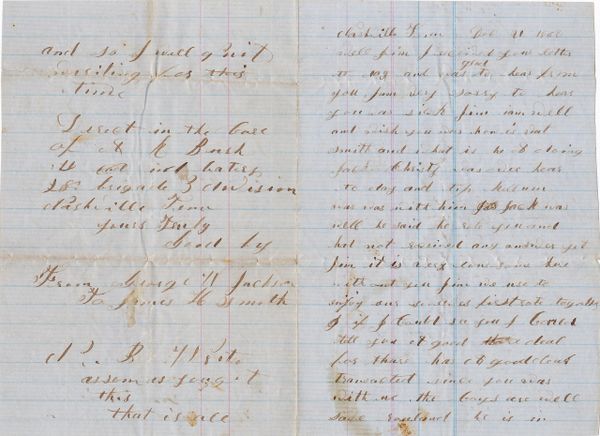 and so I will quit
writing for this
time
Direct in the Care
of A R Bush
not batery
28th brigade 3 division
Nashville Tenn
yours Truly
Good by
From George W Jackson
To James H Smith
N. B. Write
as soon as you git
this
that is all
Nashville Tenn 1862
well Jim I received your letter
to day and was glad to hear from
you Jim very sorry to hear
you was sick Jim I am well
and wish you was how is
smith and what is he at doing
Jack Christy was here
to day and
was with him Jack was
well he said he rote you and
had not received any answer yet
Jim it is very lonesome here
without you Jim we use to
enjoy our selves first rate together
if I Could see you I Could
tell you a good deal
for there has a good deal
transacted since you was
with us the boys are well
save he is in